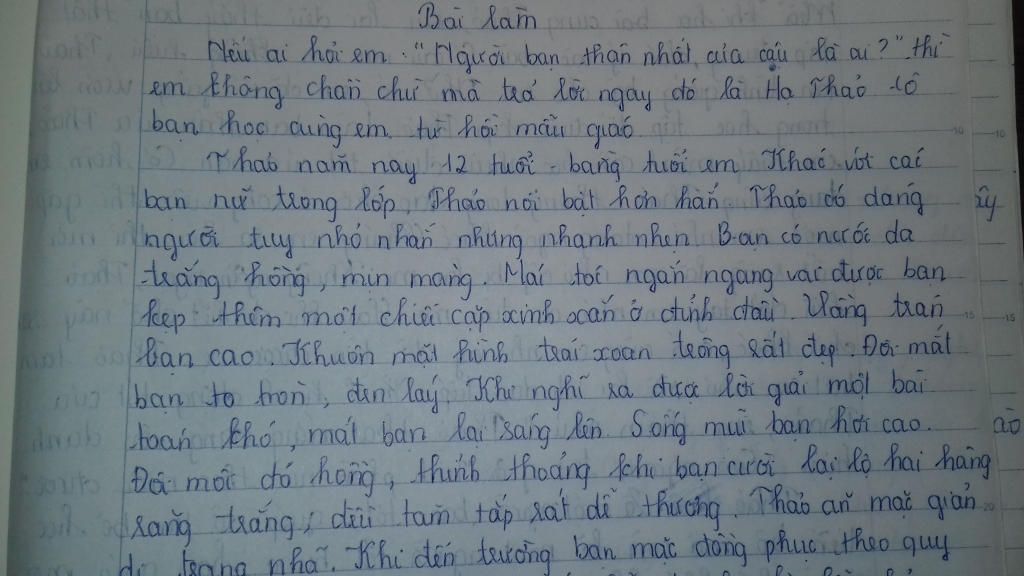 Bài làm
Nếu ai hỏi em: "Người bạn thân nhất của cậu là ai?" thì
em không chần chừ mà trả lời ngay đó là Hạ Thảo - cô
bạn học cùng em từ hồi mẫu giáo.
Thảo năm nay 12 tuổi bằng tuổi em. Khác với các
bạn nữ trong lớp, Thảo nổi bật hơn hẳn. Thảo có dáng
ây
người tuy nhỏ nhắn nhưng nhanh nhẹn. Bạn có nước da
trắng hồng, mịn màng. Mái tóc ngắn ngang vai được bạn
kẹp thêm một chiếc cặp xinh xắn ở đỉnh đầu. Vầng trán
bạn cao. Khuôn mặt hình trái xoan trông rất đẹp. Đôi mắt
bạn to tròn, đen láy. Khi nghĩ ra được lời giải một bài
toán khó, mắt bạn lại sáng lên. Sống mũi bạn hơi cao.
ào
Đôi môi đỏ hồng, thỉnh thoảng khi bạn cười lại lộ hai hàng
răng trắng, đều tăm tắp rất dễ thương. Thảo ăn mặc giản
dị, trang nhã. Khi đến trường bạn mặc đồng phục theo quy